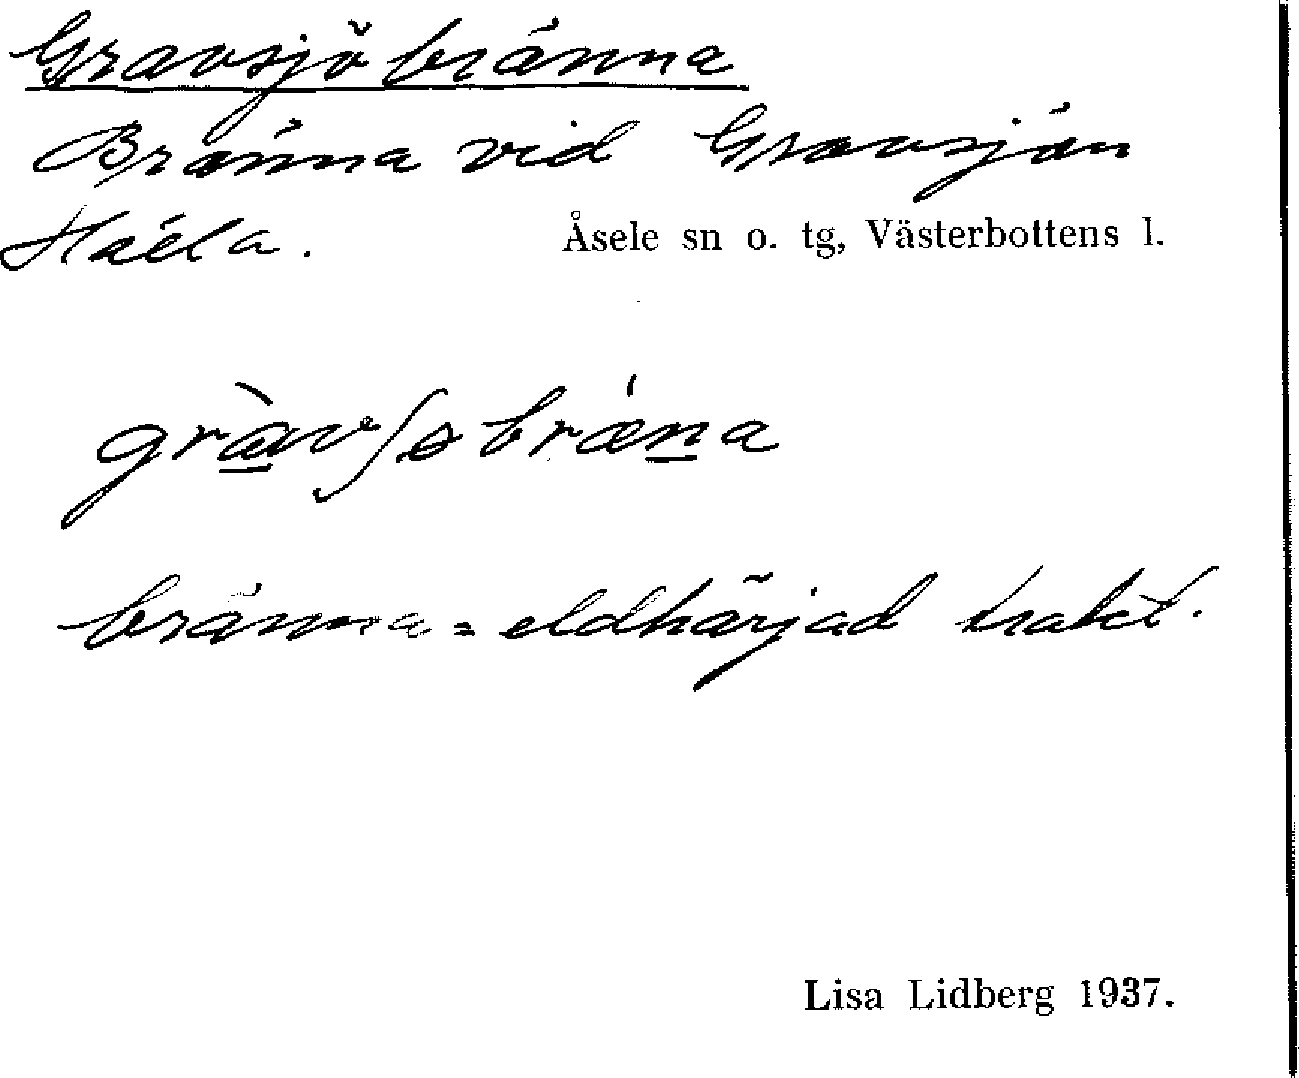 Gravsjöbränna
Bränna vid Gravsjön
Hälla. Åsele sn o. tg, Västerbottens l.
gràvʃøbrǽna
bränna = eldhärjad trakt.
Lisa Lidberg 1937.